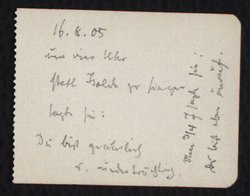 16.8.05
um vier Uhr
statt Isolde zu singen
sagte sie:
Du bist grauslich
u. niederträchtig.
Um 3/4 7 sagte sie:
Du bist